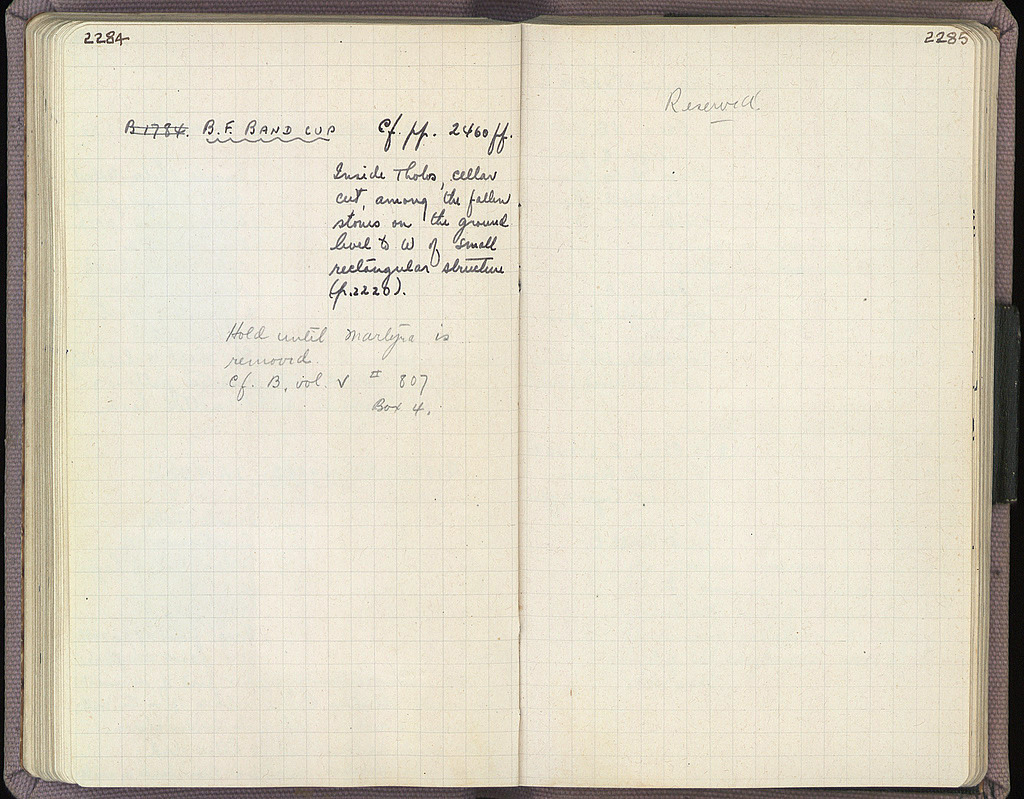 2284
B 1784. B.F. BAND CUP Cf. pp. 2460 ff.
Inside Tholos, cellar
cut, among the fallen
stones on the ground
level to W of small
rectangular structure
(p. 2220).
Hold until Martyra is
removed.
Cf. B, vol. V # 807
Box 4.
2285
Reserved.